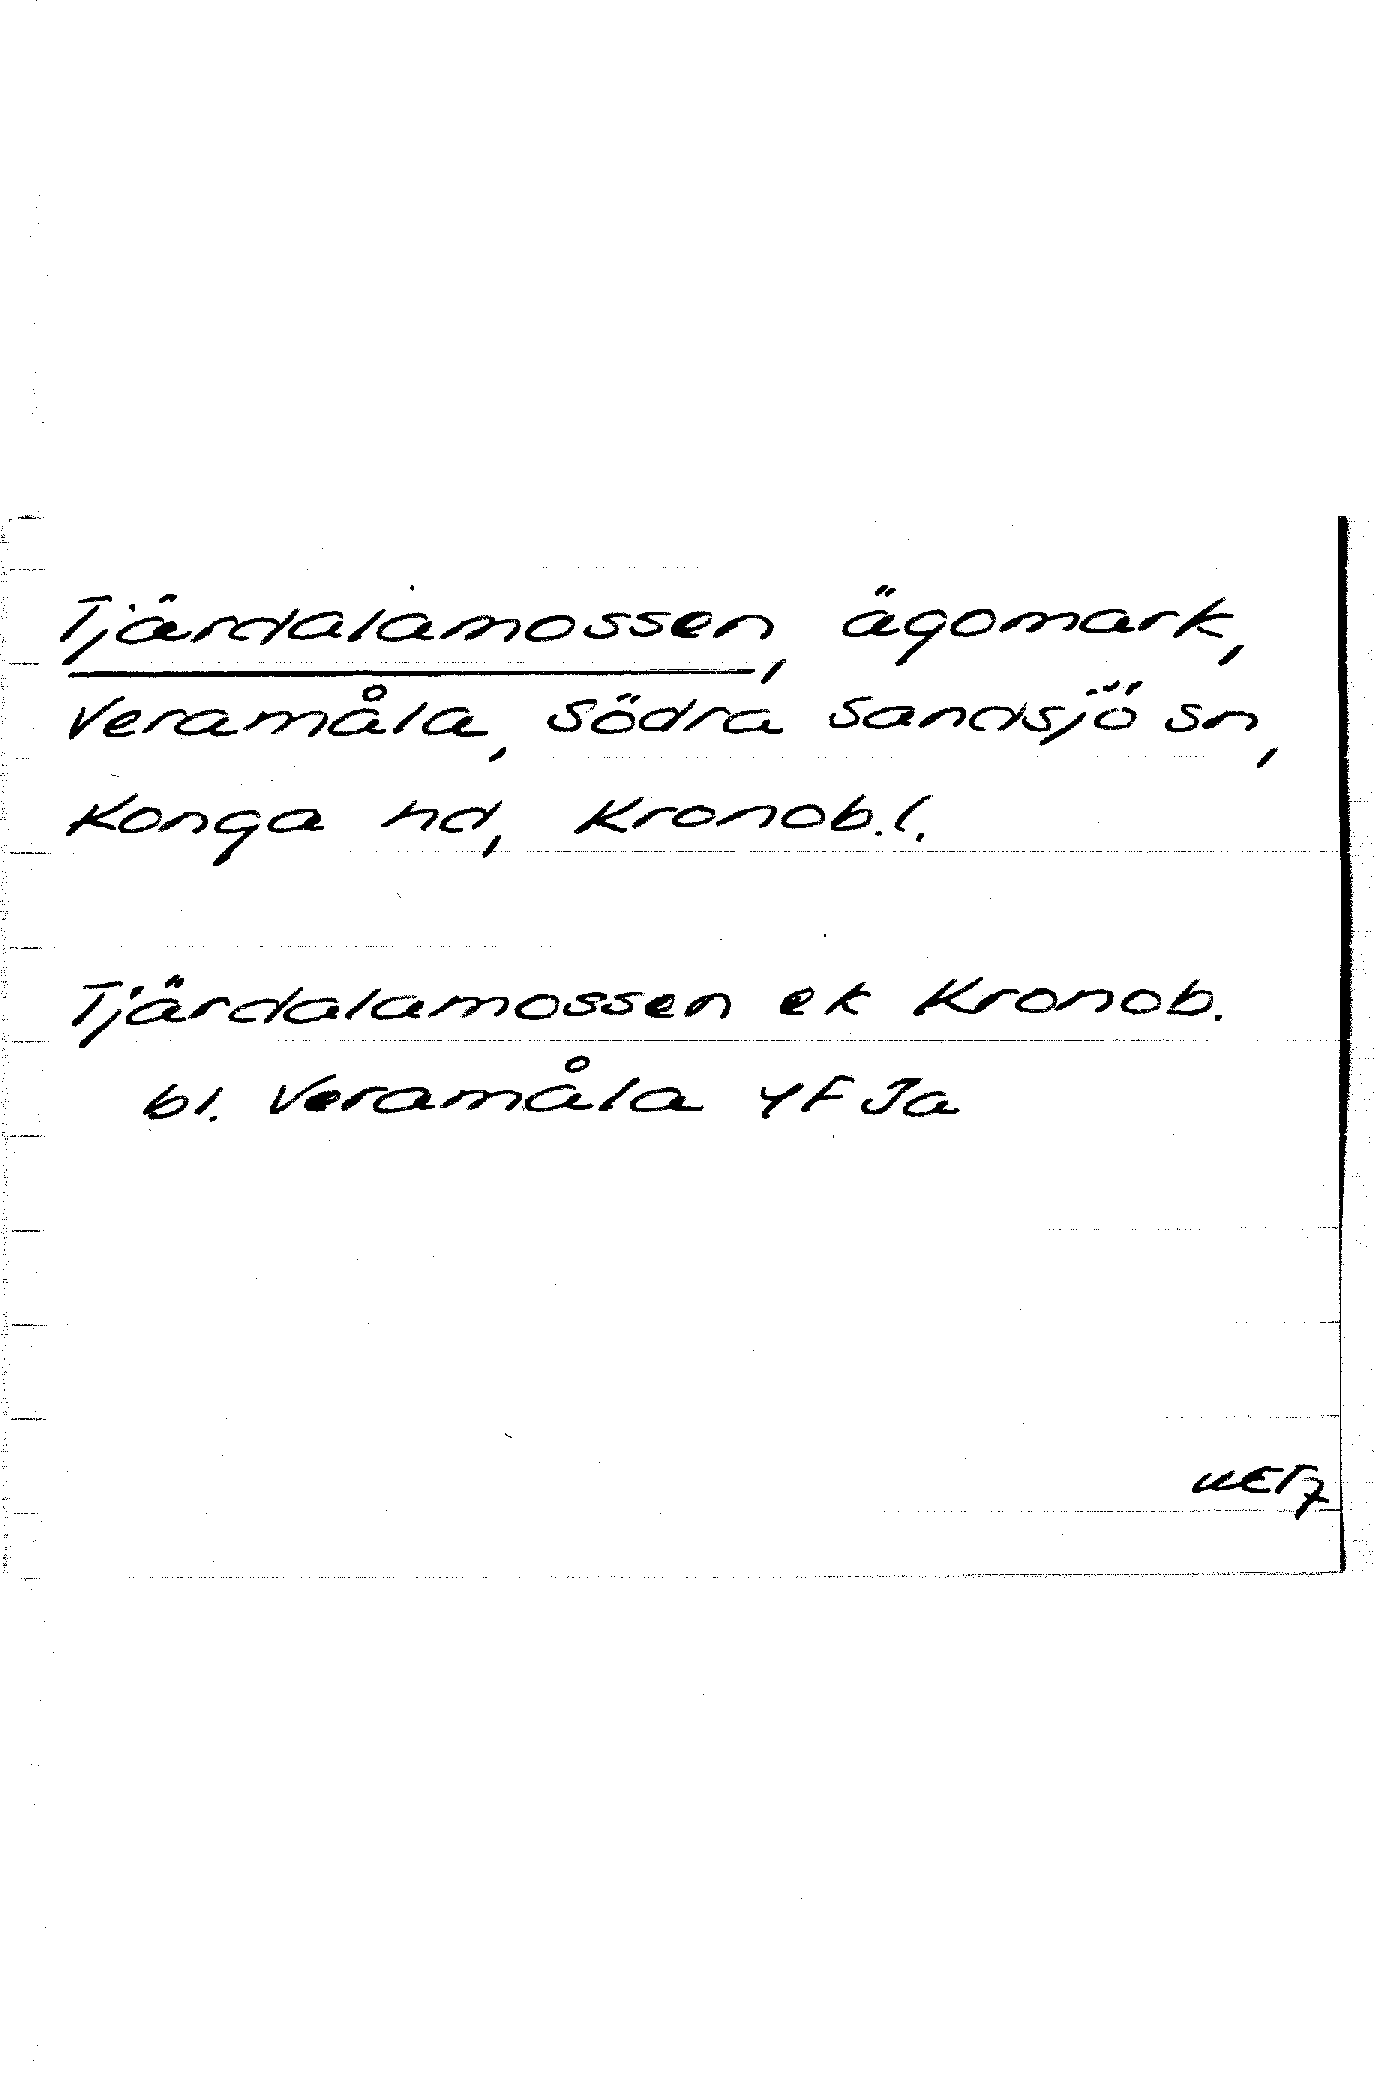 Tjärdalamossen, ägomark,
Veramåla, Södra Sandsjö sn,
Konga hd, Kronob. l.
Tjärdalamossen ek Kronob.
bl. Veramåla 4F Ja